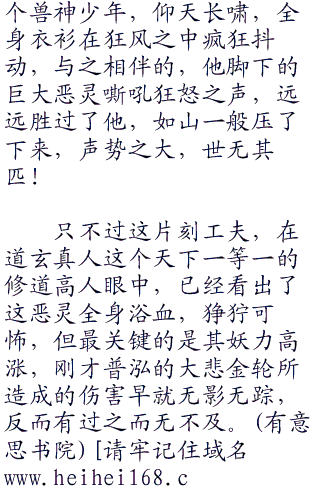 个兽神少年，仰天长啸，全
身衣衫在狂风之中疯狂抖
动，与之相伴的，他脚下的
巨大恶灵嘶吼狂怒之声，远
远胜过了他，如山一般压了
下来，声势之大，世无其
匹！
只不过这片刻工夫，在
道玄真人这个天下一等一的
修道高人眼中，已经看出了
这恶灵全身浴血，狰狞可
怖，但最关键的是其妖力高
涨，刚才普泓的大悲金轮所
造成的伤害早就无影无踪，
反而有过之而无不及。(有意
思书院)[请牢记住域名
www.heihei168.c